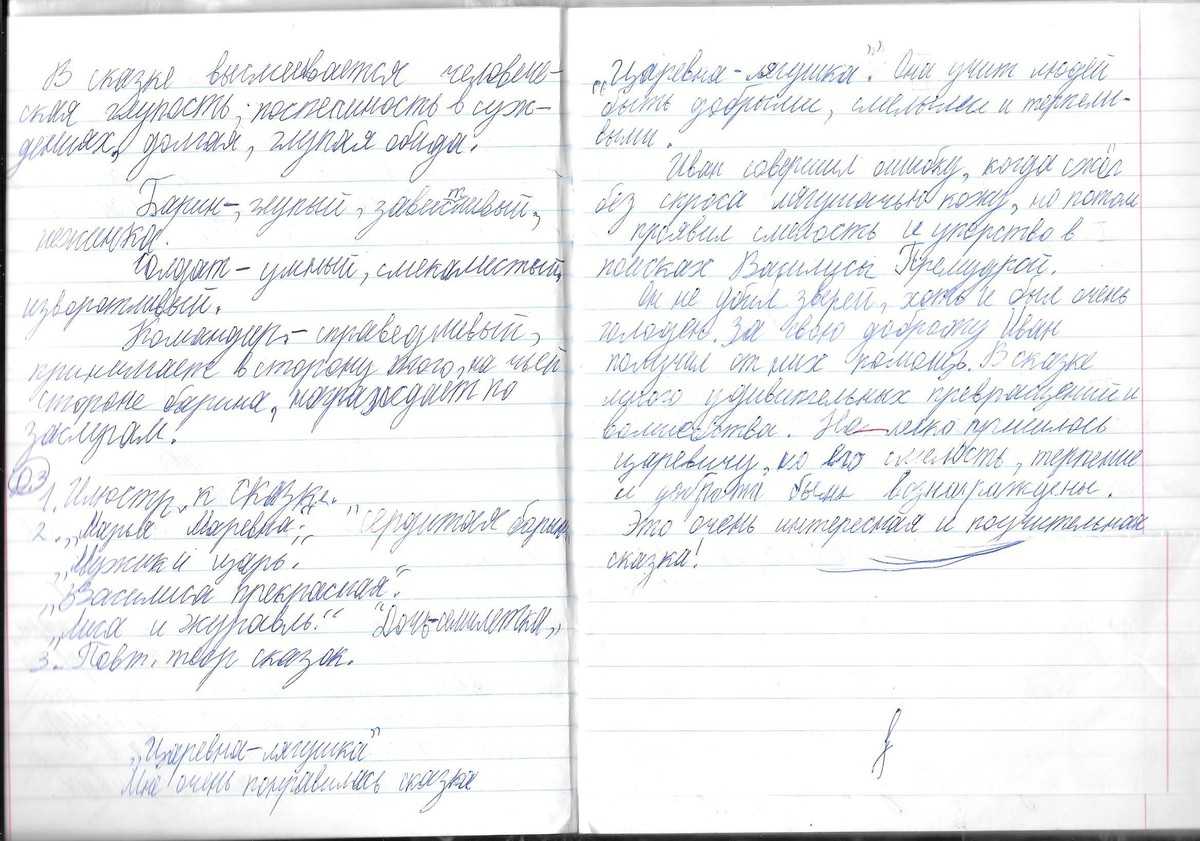 В сказке высмеивается человече-
ская глупость, поспешность в суж-
дениях, долгая, глупая обида.
Барин-, глупый, завистливый,
неженка.
Солдат - умный, смекалистый,
изворотливый.
Командир.- справедливый,
принимает в сторону того, на чьей
стороне барина, награждает по
заслугам.
Д.З
1. Илюстр. к сказке.
2. „Марья Маревна." "Сердитая барыня
„Мужик и царь.
„Василиса прекрасная".
„Лиса и журавль." "Дочь-семилетка„
3. Повт. теор сказок.
„Царевна-лягушка"
Мне очень понравилась сказка
„Царевна-лягушка". Она учит людей
быть добрыми, смелыми и терпели-
выми.
Иван совершил ошибку, когда сжёг
без спроса лягушачью кожу, но потом
проявил смелость и упорство в
поисках Василисы Премудрой.
Он не убил зверей, хоть и был очень
голоден. За свою доброту Иван
получил от них помощь. В сказке
много удивительных превращений и
волшебства. Не легко пришлось
царевичу, но его смелость, терпение
и доброта были вознаграждены.
Это очень интересная и поучительная
сказка!